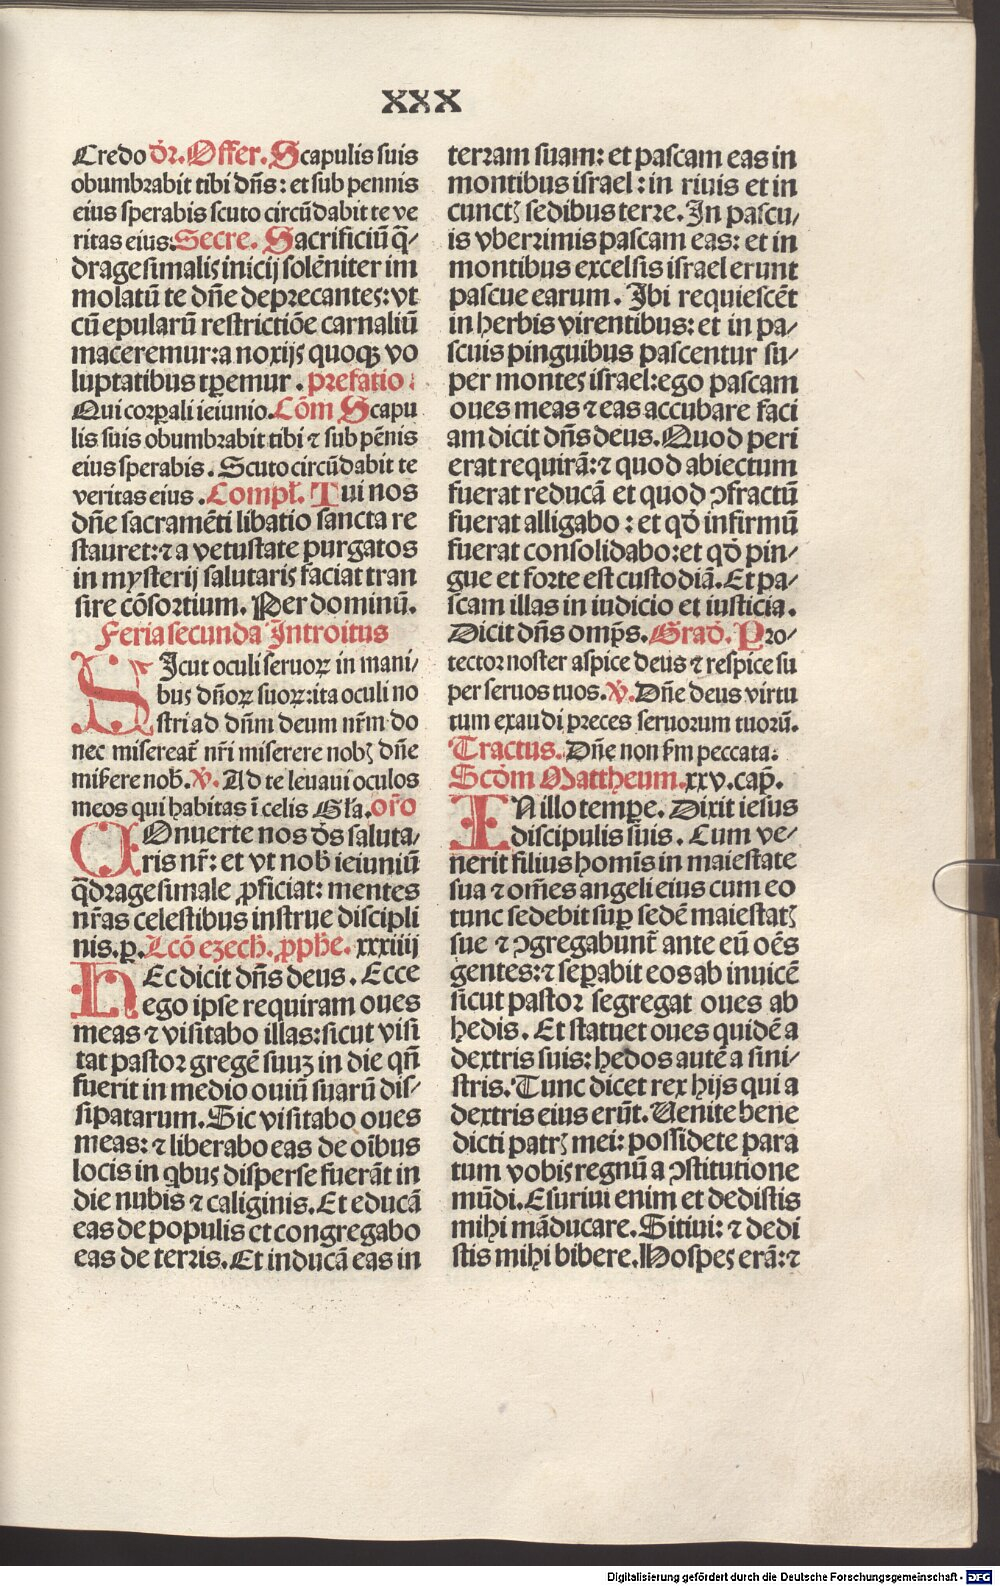 XXX
Credo dr̄. Offer. Scapulis suis
obumbrabit tibi dn̄s: et sub pennis
eius sperabis scuto circūdabit te ve
ritas eius: Secre. Sacrificiū q̄⸗
dragesimalis inicij solēniter im
molatū te dn̄e deprecantes: vt
cū epularū restrictiōe carnaliū
maceremur: a noxijs quoqꝫ vo
luptatibus tꝑemur. prefatio:
Qui corꝑali ieiunio. Cōm Scapu
lis suis obumbrabit tibi ⁊ sub pēnis
eius sperabis. Scuto circūdabit te
veritas eius. Compl̄. Tui nos
dn̄e sacramēti libatio sancta re
stauret: ⁊ a vetustate purgatos
in mysterij salutaris faciat tran
sire cōsortium. Per dominū.
Feria secunda Introitus
SIcut oculi seruoꝝ in mani⸗
bus dn̄oꝝ suoꝝ: ita oculi no
stri ad dn̄m deum nr̄m do
nec misereat̄ nr̄i miserere nobꝫ dn̄e
miẜere nob̄. ℣. Ad te leuaui oculos
meos qui habitas ī celis Gl̄a. or̄o
COnuerte nos dē̄s saluta⸗
ris nr̄: et vt nob̄ ieiuniū
q̄dragesimale ꝓficiat: mentes
nr̄as celestibus instrue discipli
nis. ꝑ. Lcō ezech̄. ꝓph̄e. xxxiiij
HEc dicit dn̄s deus. Ecce
ego ipse requiram oues
meas ⁊ visitabo illas: sicut visi
tat pastor gregē suuꝫ in die qn̄
fuerit in medio ouiū suarū dis⸗
sipatarum. Sic visitabo oues
meas: ⁊ liberabo eas de oībus
locis in qbus disperse fuerāt in
die nubis ⁊ caliginis. Et educā
eas de populis et congregabo
eas de terris. Et inducā eas in
terram suam: et pascam eas in
montibus israel: in riuis et in
cunctꝫ sedibus terre. In pascu⸗
is vberrimis pascam eas: et in
montibus excelsis israel erunt
pascue earum. Ibi requiescēt
in herbis virentibus: et in pa⸗
scuis pinguibus pascentur su⸗
per montes israel: ego pascam
oues meas ⁊ eas accubare faci
am dicit dn̄s deus. Quod peri
erat requirā: ⁊ quod abiectum
fuerat reducā et quod ꝯfractū
fuerat alligabo: et qd̄ infirmū
fuerat consolidabo: et qd̄ pin⸗
gue et forte est custodiā. Et pa⸗
scam illas in iudicio et iusticia.
Dicit dn̄s omp̄s. Grad̄. Pro⸗
tector noster aspice deus ⁊ respice su
per seruos tuos. ℣. Dn̄e deus virtu
tum exaudi preces seruorum tuorū.
Tractus. Dn̄e non ẜm peccata:
Scd̄m Mattheum. xxv. cap̄.
IN illo tempe. Dixit iesus
discipulis suis. Cum ve⸗
nerit filius homīs in maiestate
sua ⁊ om̄es angeli eius cum eo
tunc sedebit suꝑ sedē maiestatꝫ
sue ⁊ ꝯgregabunt̄ ante eū oēs
gentes: ⁊ seꝑabit eos ab inuicē
sicut pastor segregat oues ab
hedis. Et statuet oues quidē a
dextris suis: hedos autē a sini⸗
stris. Tunc dicet rex hijs qui a
dextris eius erūt. Uenite bene
dicti patrꝫ mei: possidete para
tum vobis regnū a ꝯstitutione
mūdi. Esuriui enim et dedistis
mihi māducare. Sitiui: ⁊ dedi
stis mihi bibere. Hospes erā: ⁊
Digitalisierung gefördert durch die Deutsche Forschungsgemeinschaft - DFG